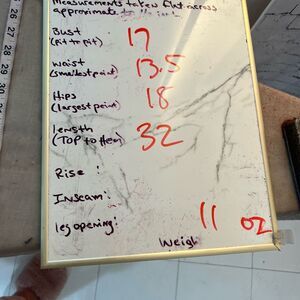 Measurements taken flat across
approximate to the inch
Bust 17
(pit to pit)
waist 13.5
(smallest point)
Hips 18
(largest point)
length 32
(TOP to Hem)
Rise :
Inseam:
leg opening:
11 oz
Weigh